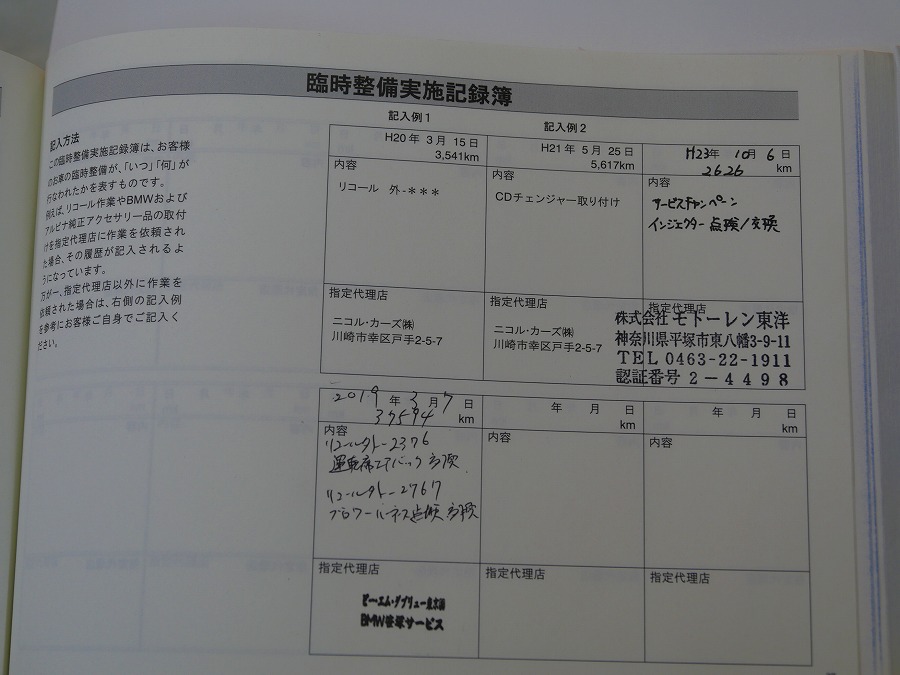 臨時整備実施記録簿
記入方法
この臨時整備実施記録簿は、お客様
のお車の臨時整備が、「いつ」「何」が
行なわれたかを表すものです。
例えば、リコール作業やBMWおよび
アルピナ純正アクセサリー品の取付
けを指定代理店に作業を依頼され
た場合、その履歴が記入されるよ
うになっています。
万が一、指定代理店以外に作業を
依頼された場合は、右側の記入例
を参考にお客様ご自身でご記入く
ださい。
記入例1
H20年 3月 15日
3,541km
内容
リコール 外-***
指定代理店
ニコル・カーズ㈱
川崎市幸区戸手2-5-7
記入例2
H21年 5月 25日
5,617km
内容
CDチェンジャー取り付け
指定代理店
ニコル・カーズ㈱
川崎市幸区戸手2-5-7
H23年 10月 6日
2626 km
内容
サービスキャンペーン
インジェクター点検/交換
指定代理店
株式会社 モトーレン東洋
神奈川県平塚市東八幡3-9-11
TEL 0463-22-1911
認証番号 2-4498
2019年 3月 7日
37594 km
内容
リコール外-2376
運転席エアバック交換
リコール外-2767
ブロワーハーネス点検 交換
指定代理店
ビー・エム・ダブリュー東京㈱
BMW サービス
年 月 日
km
内容
指定代理店
年 月 日
km
内容
指定代理店